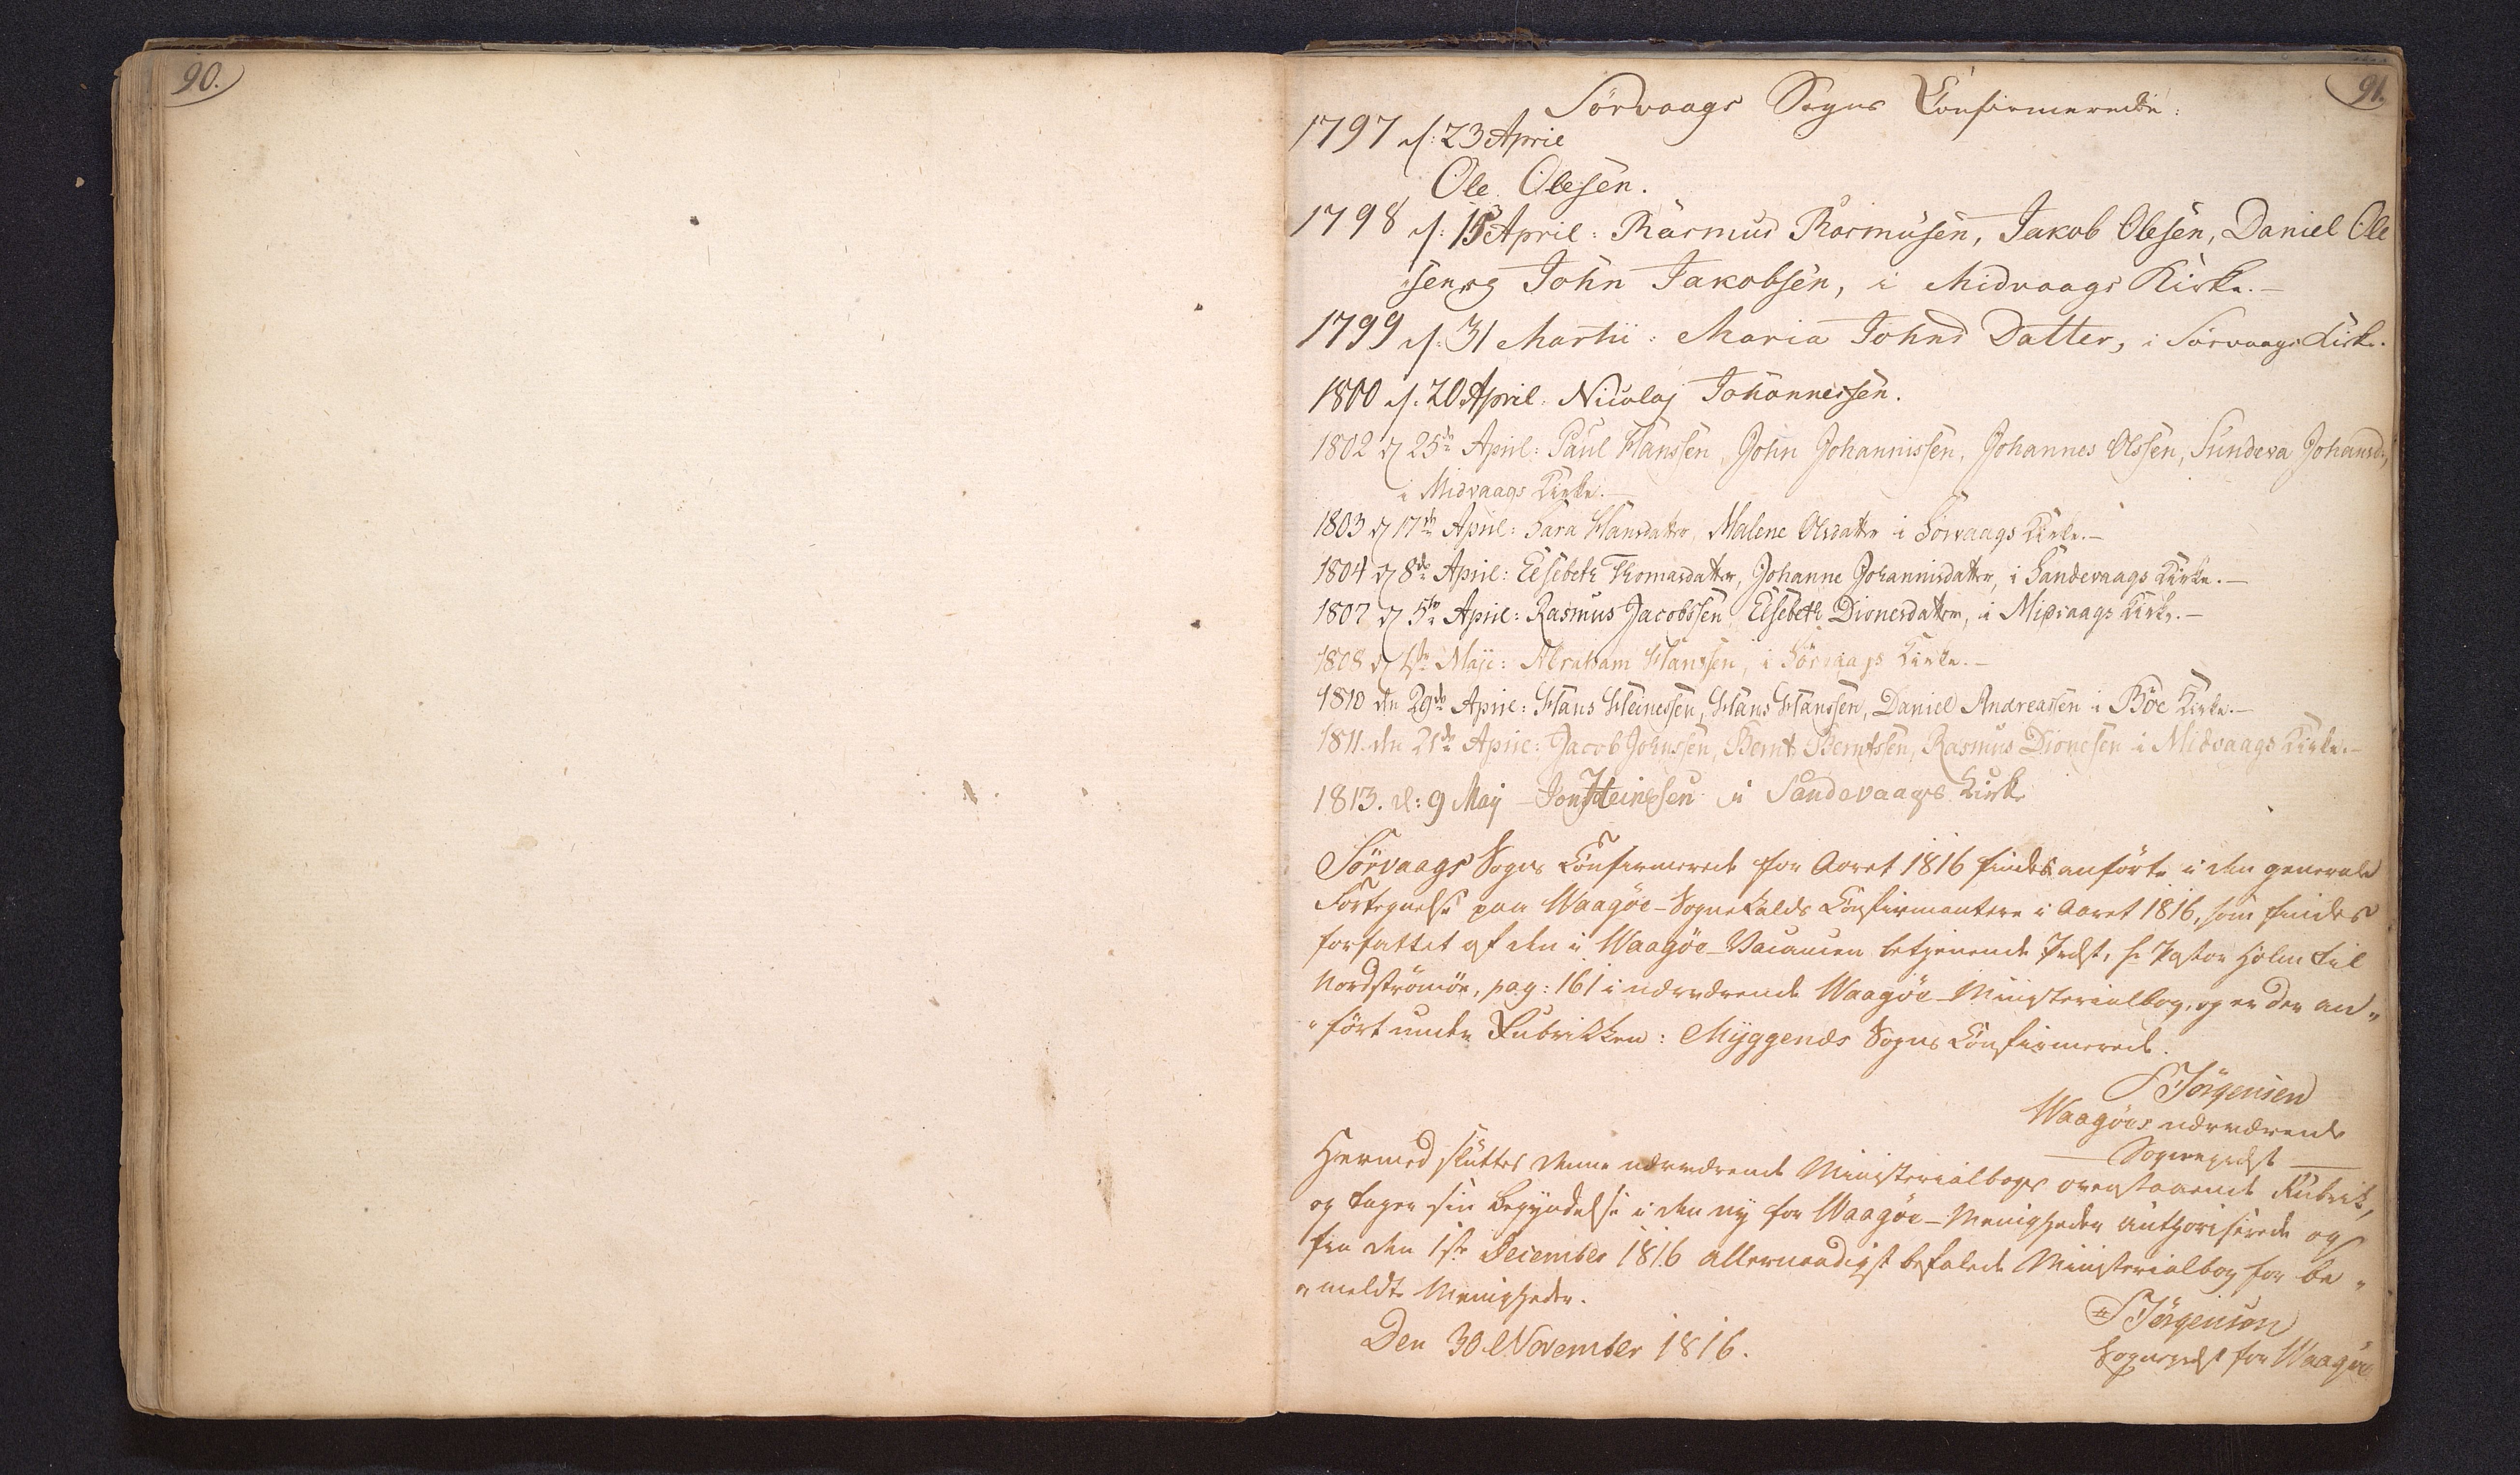 90.
91.
Sörvaags Sogns Confirmerede:
1797 d: 23 April
Ole Olesen.
1798 d: 15 April: Rasmus Rasmusen, Jakob Olesen, Daniel Ole
sen og John Jakobsen, i Midvaags Kirke.—
1799 d: 31 Martii: Maria Johns Datter, i Sörvaags Kirke.
1800 d: 20 April: Nicolaj Johannessen.
1802 d 25de April: Paul Hanssen, John Johannissen, Johannes Olssen, Sundeva Johansd.,
i Midvaags Kirke.—
1803 d 17de April: Sara Hansdatter, Malene Olsdatter i Sörvaags Kirke.—
1804 d 8de April: Elsebeth Thomasdatter, Johanne Johannisdatter, i Sandevaags Kirke.—
1807 d 5te April: Rasmus Jacobssen, Elsebeth Dionesdatter, i Midvaags Kirke.—
1808 d 1ste Maji: Abraham Hanssen, i Sörvaags Kirke.—
1810 den 29de April: Hans Heinessen, Hans Hanssen, Daniel Andreassen i Böe Kirke.—
1811. den 21de April: Jacob Johnssen, Bernt Berntssen, Rasmus Dionesen i Midvaags Kirke.—
1813. d: 9 Maij — Jon Heinesen i Sandevaags Kirke
Sörvaags Sogns Confirmerede for Aaret 1816 findes anförte i den generale
Fortegnelse paa Waagöe-Sognekalds Confirmantere i Aaret 1816, som findes
forfattet af den i Waagöe-Vacancen betjenende Præst, Hr Pastor Holm til
Nordströmöe, pag: 161 i nærværende Waagöe-Ministerialbog, og er der an„
„fört under Rubrikken: Myggenæs Sogns Confirmerede.
Jörgensen
Waagöes nærværende
— Sognepræst —
Hermed sluttes denne nærværende Ministerialbogs ovenstaaende Rubrik,
og tager sin Begyndelse i den ny for Waagöe-Menigheder authoriserede og
fra den 1ste December 1816 allernaadigst befalede Ministerialbog for be„
„meldte Menigheder.
Den 30 November 1816.
Jörgensen
Sognepræst for Waagöe